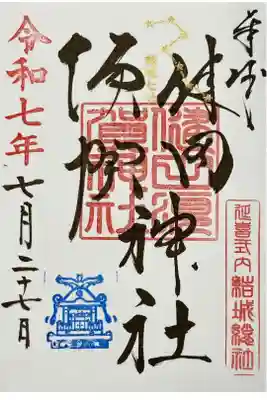 奉拝
延喜式内 結城總社
健田
須賀
神社
健田須賀神社
令和七年
七月二十七日